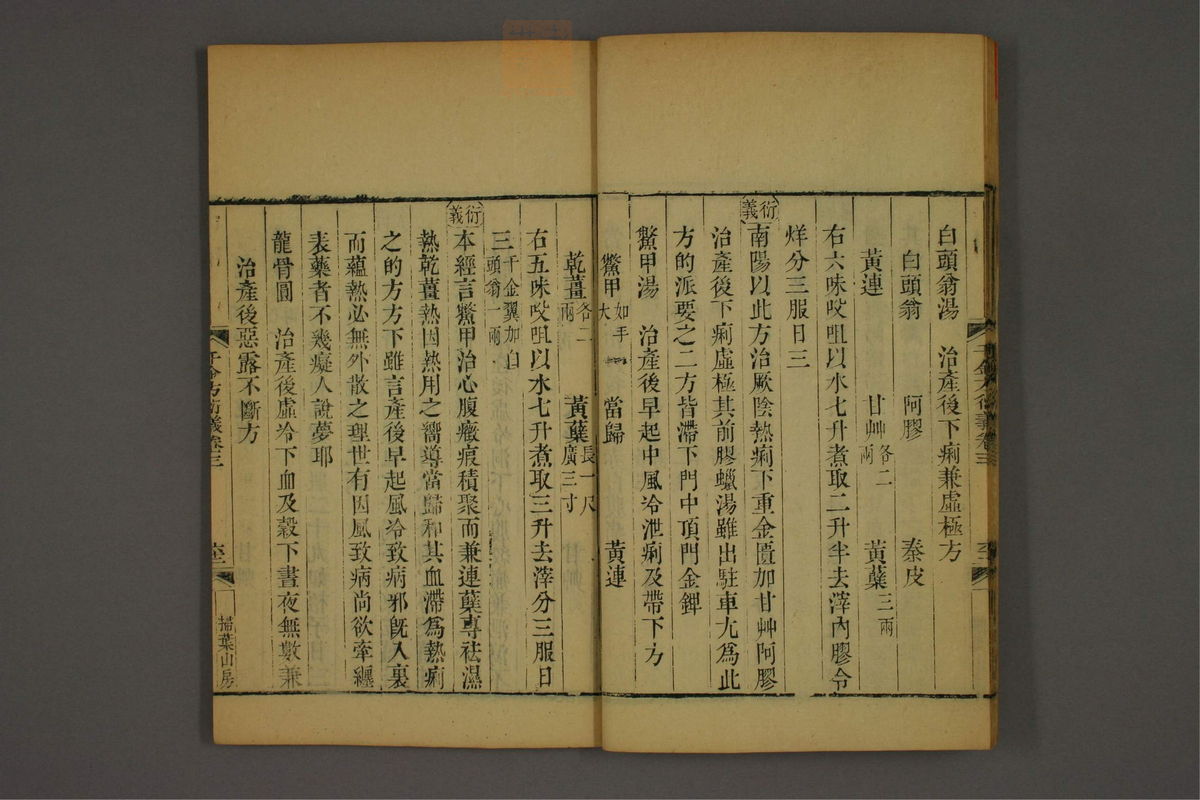 白頭翁湯　治產後下痢兼虛極方
白頭翁　阿膠　秦皮
黃連　甘艸各二兩　黃蘗三兩
右六味㕮咀以水七升煮取二升半去滓內膠令
烊分三服日三
衍義
南陽以此方治厥陰熱痢下重金匱加甘艸阿膠
治產後下痢虛極其前膠蠟湯雖出駐車尤為此
方的派要之二方皆滯下門中頂門金鎞
鱉甲湯　治產後早起中風冷泄痢及帶下方
鱉甲如手大　當歸　黃連
乾薑各二兩　黃蘗長一尺廣三寸
右五味㕮咀以水七升煮取三升去滓分三服日
三千金翼加白頭翁一兩
衍義
本經言鱉甲治心腹癥瘕積聚而兼連蘗專祛濕
熱乾薑熱因熱用之嚮導當歸和其血滯為熱痢
之的方方下雖言產後早起風冷致病邪旣入裏
而蘊熱必無外散之理世有因風致病尚欲牽纏
表藥者不幾癡人說夢耶
龍骨圓　治產後虛冷下血及穀下晝夜無數兼
治產後惡露不斷方
千金方衍義卷三
掃葉山房